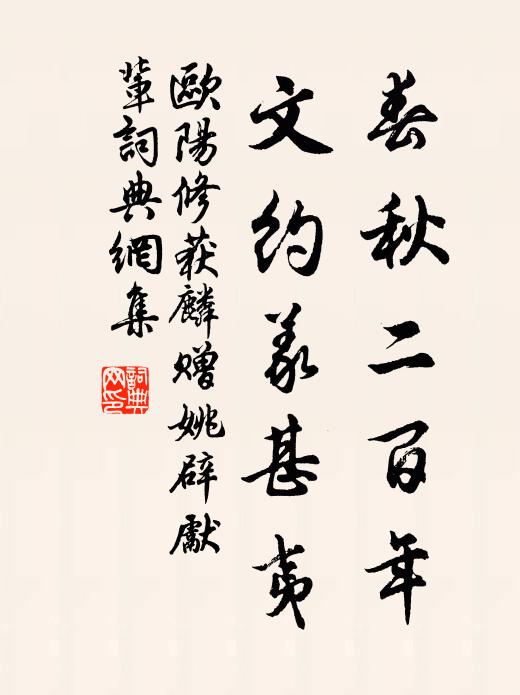 春秋二百年
文約義甚夷
歐陽修获麟赠姚辟獻
輩詞典網集
詞典
网印